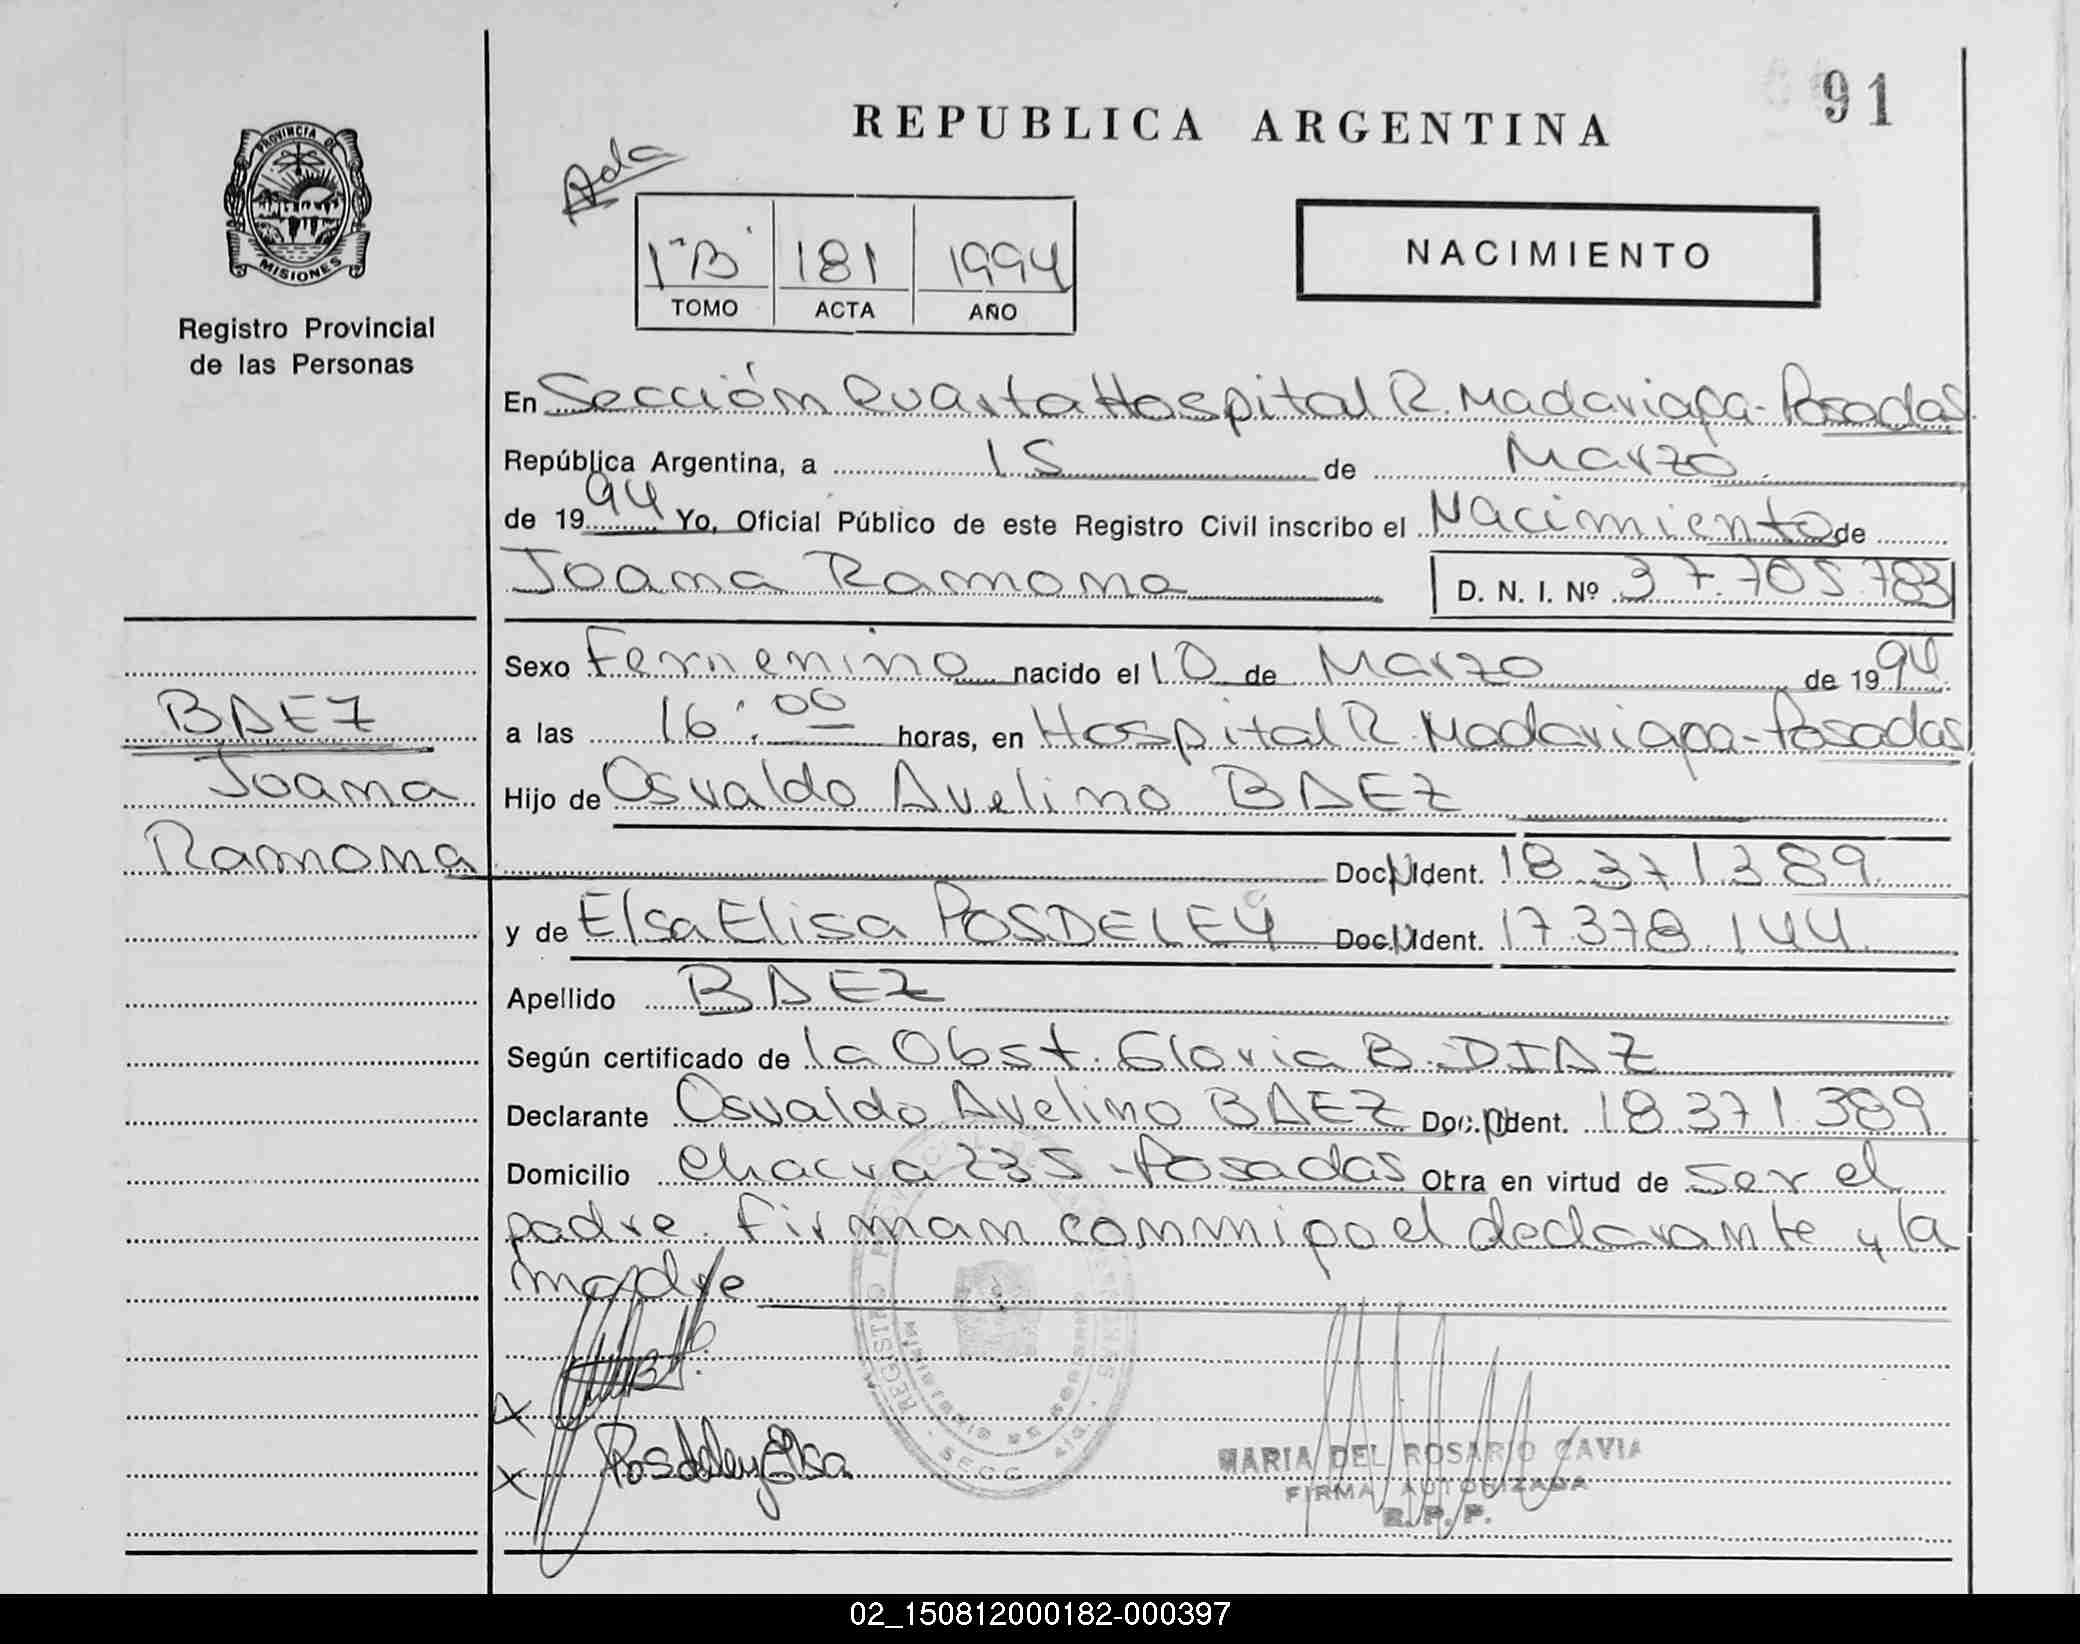 91
REPUBLICA ARGENTINA
Ada
PROVINCIA DE
MISIONES
Registro Provincial
de las Personas
1"B" 181 1994
TOMO ACTA AÑO
NACIMIENTO
En Sección Cuarta Hospital R. Madariaga - Posadas
República Argentina, a 15 de Marzo
de 1994 Yo, Oficial Público de este Registro Civil inscribo el Nacimiento de
Joana Ramona D. N. I. Nº 37.705.783
Sexo Femenino nacido el 10 de Marzo de 1994
BAEZ
a las 16:00 horas, en Hospital R. Madariaga - Posadas
Joana
Hijo de Osvaldo Avelino BAEZ
Ramona
Doc. N Ident. 18.371.389
y de Elsa Elisa POSDELEY Doc. N Ident. 17.378.144
Apellido BAEZ
Según certificado de la Obst. Gloria B. DIAZ
Declarante Osvaldo Avelino BAEZ Doc. N Ident. 18.371.389
Domicilio Chacra 235 - Posadas Obra en virtud de ser el
padre. Firman conmigo el declarante y la
madre
X
X Posdeley Elsa
MARIA DEL ROSARIO CAVIA
FIRMA AUTORIZADA
R. P. P.
02_150812000182-000397